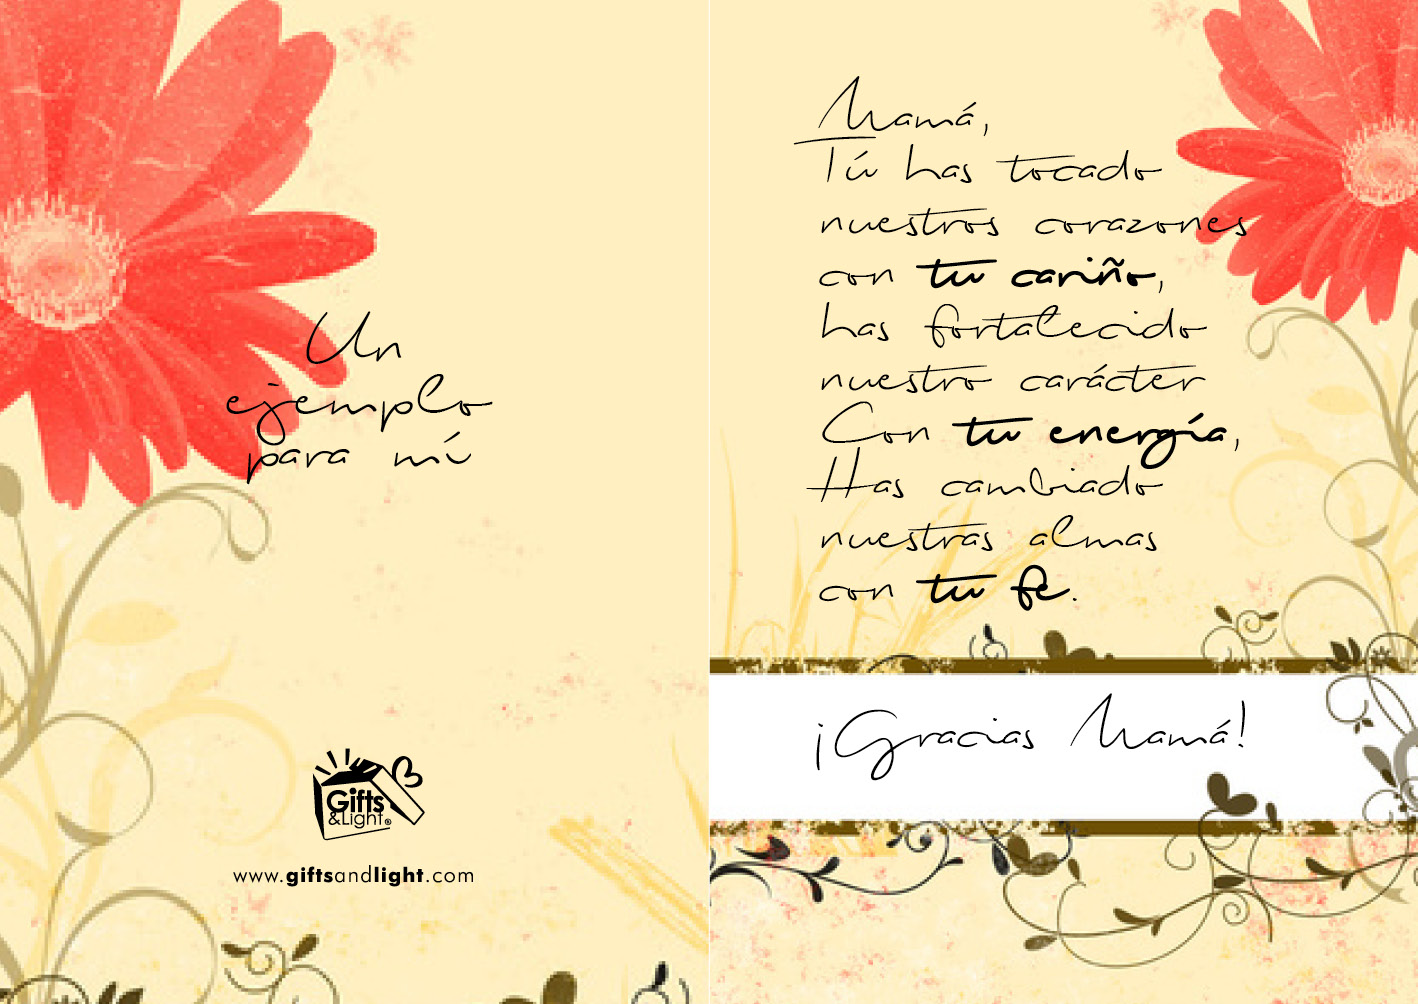 Un
ejemplo
para mí
Gifts
&Light®
www.giftsandlight.com
Mamá,
Tú has tocado
nuestros corazones
con tu cariño,
has fortalecido
nuestro carácter
Con tu energía,
Has cambiado
nuestras almas
con tu fe.
¡Gracias Mamá!